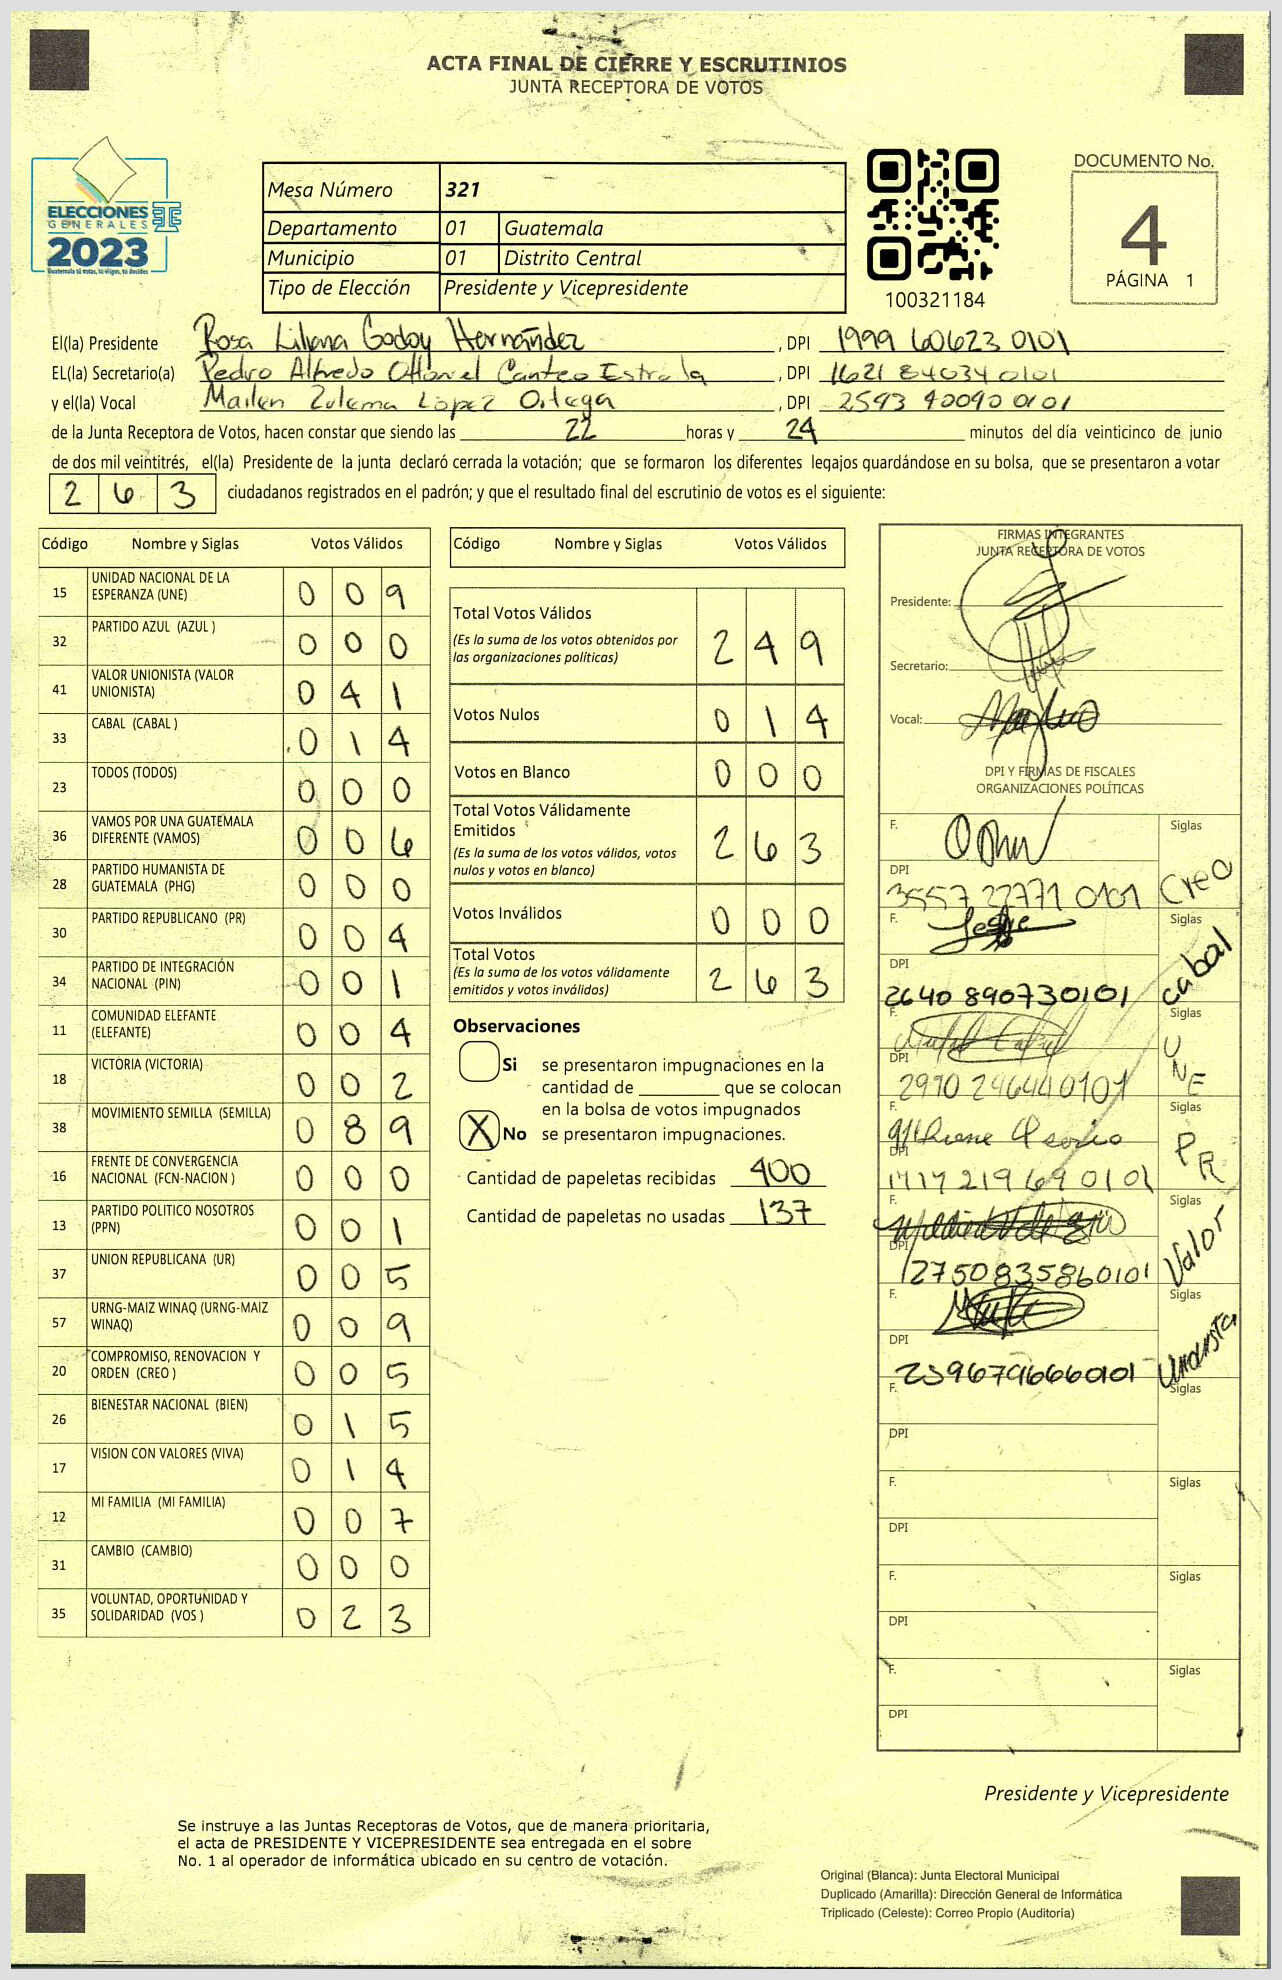 ACTA FINAL DE CIERRE Y ESCRUTINIOS
JUNTA RECEPTORA DE VOTOS
ELECCIONES
GENERALES
2023
Guatemala tú votas, tú eliges, tú decides
Mesa Número 321
Departamento 01 Guatemala
Municipio 01 Distrito Central
Tipo de Elección Presidente y Vicepresidente
100321184
DOCUMENTO No.
4
PÁGINA 1
El(la) Presidente Rosa Liliana Godoy Hernández, DPI 1999 60623 0101
EL(la) Secretario(a) Pedro Alfredo Canteo Estrada, DPI 1621 84034 0101
y el(la) Vocal Mailen Zulema López Ortega, DPI 2593 40090 0101
de la Junta Receptora de Votos, hacen constar que siendo las 22 horas y 24 minutos del día veinticinco de junio
de dos mil veintitrés, el(la) Presidente de la junta declaró cerrada la votación; que se formaron los diferentes legajos guardándose en su bolsa, que se presentaron a votar
263 ciudadanos registrados en el padrón; y que el resultado final del escrutinio de votos es el siguiente:
Código Nombre y Siglas Votos Válidos
15 UNIDAD NACIONAL DE LA ESPERANZA (UNE) 009
32 PARTIDO AZUL (AZUL ) 000
41 VALOR UNIONISTA (VALOR UNIONISTA) 041
33 CABAL (CABAL ) 014
23 TODOS (TODOS) 000
36 VAMOS POR UNA GUATEMALA DIFERENTE (VAMOS) 006
28 PARTIDO HUMANISTA DE GUATEMALA (PHG) 000
30 PARTIDO REPUBLICANO (PR) 004
34 PARTIDO DE INTEGRACIÓN NACIONAL (PIN) 001
11 COMUNIDAD ELEFANTE (ELEFANTE) 004
18 VICTORIA (VICTORIA) 002
38 MOVIMIENTO SEMILLA (SEMILLA) 089
16 FRENTE DE CONVERGENCIA NACIONAL (FCN-NACION ) 000
13 PARTIDO POLITICO NOSOTROS (PPN) 001
37 UNION REPUBLICANA (UR) 005
57 URNG-MAIZ WINAQ (URNG-MAIZ WINAQ) 009
20 COMPROMISO, RENOVACION Y ORDEN (CREO ) 005
26 BIENESTAR NACIONAL (BIEN) 015
17 VISION CON VALORES (VIVA) 014
12 MI FAMILIA (MI FAMILIA) 007
31 CAMBIO (CAMBIO) 000
35 VOLUNTAD, OPORTUNIDAD Y SOLIDARIDAD (VOS ) 023
Código Nombre y Siglas Votos Válidos
Total Votos Válidos 249
(Es la suma de los votos obtenidos por
las organizaciones políticas)
Votos Nulos 014
Votos en Blanco 000
Total Votos Válidamente
Emitidos 263
(Es la suma de los votos válidos, votos
nulos y votos en blanco)
Votos Inválidos 000
Total Votos 263
(Es la suma de los votos válidamente
emitidos y votos inválidos)
Observaciones
Si se presentaron impugnaciones en la
cantidad de ________ que se colocan
en la bolsa de votos impugnados
X No se presentaron impugnaciones.
Cantidad de papeletas recibidas 400
Cantidad de papeletas no usadas 137
FIRMAS INTEGRANTES
JUNTA RECEPTORA DE VOTOS
Presidente:
Secretario:
Vocal:
DPI Y FIRMAS DE FISCALES
ORGANIZACIONES POLÍTICAS
F. Siglas
DPI 3557 22771 0101 Creo
F. Siglas
DPI 2640 890730101 cabal
F. Siglas
DPI 2990 29644 0101 UNE
F. Siglas
DPI 1717 21969 0101 PR
F. Siglas
DPI 12750835860101 Valor
F. Siglas
DPI 2396796660101 Unionista
F. Siglas
DPI
F. Siglas
DPI
F. Siglas
DPI
F. Siglas
DPI
Presidente y Vicepresidente
Se instruye a las Juntas Receptoras de Votos, que de manera prioritaria,
el acta de PRESIDENTE Y VICEPRESIDENTE sea entregada en el sobre
No. 1 al operador de informática ubicado en su centro de votación.
Original (Blanca): Junta Electoral Municipal
Duplicado (Amarilla): Dirección General de Informática
Triplicado (Celeste): Correo Propio (Auditoria)